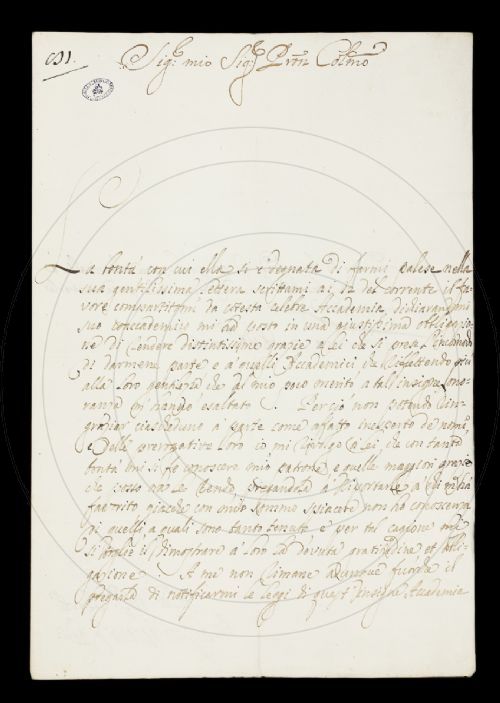 Sig:r mio Sig:r Prōn Colmo
La bontà con cui ella si è degnata di farmi palese nella
sua gentilissima lettera scrittami ai del corrente il fa-
vore compartitomi da cotesta celebre Accademia, dichiarandomi
suo coaccademico mi ha posto in una giustissima obligazio-
ne di rendere distintissime grazie a Lei che si prese l'incomodo
di darmene parte e a quelli Accademici che riflettendo più
alla loro gentilezza che al mio poco merito a tal insigne ono-
ranza mi hanno esaltato. Perciò non potendo rin-
graziar ciascheduno a parte come affatto inesperto de nomi,
e delle prerogative loro io mi rivolgo a Lei che con tanta
bontà mi si fe conoscere mio padrone e quelle maggiori grazie
che posso a Lei rendo, pregandola a riportarle a chi
giacche con mio sommo non ho conoscenza
di quelli a quali sono tanto tenuto e per tal cagione mi
si toglie il dimostrare a loro la dovuta gratitudine et obli-
gazione. A me non rimane adunque fuorche il
pregarla di notificarmi le leggi di quest' insigne Accademia